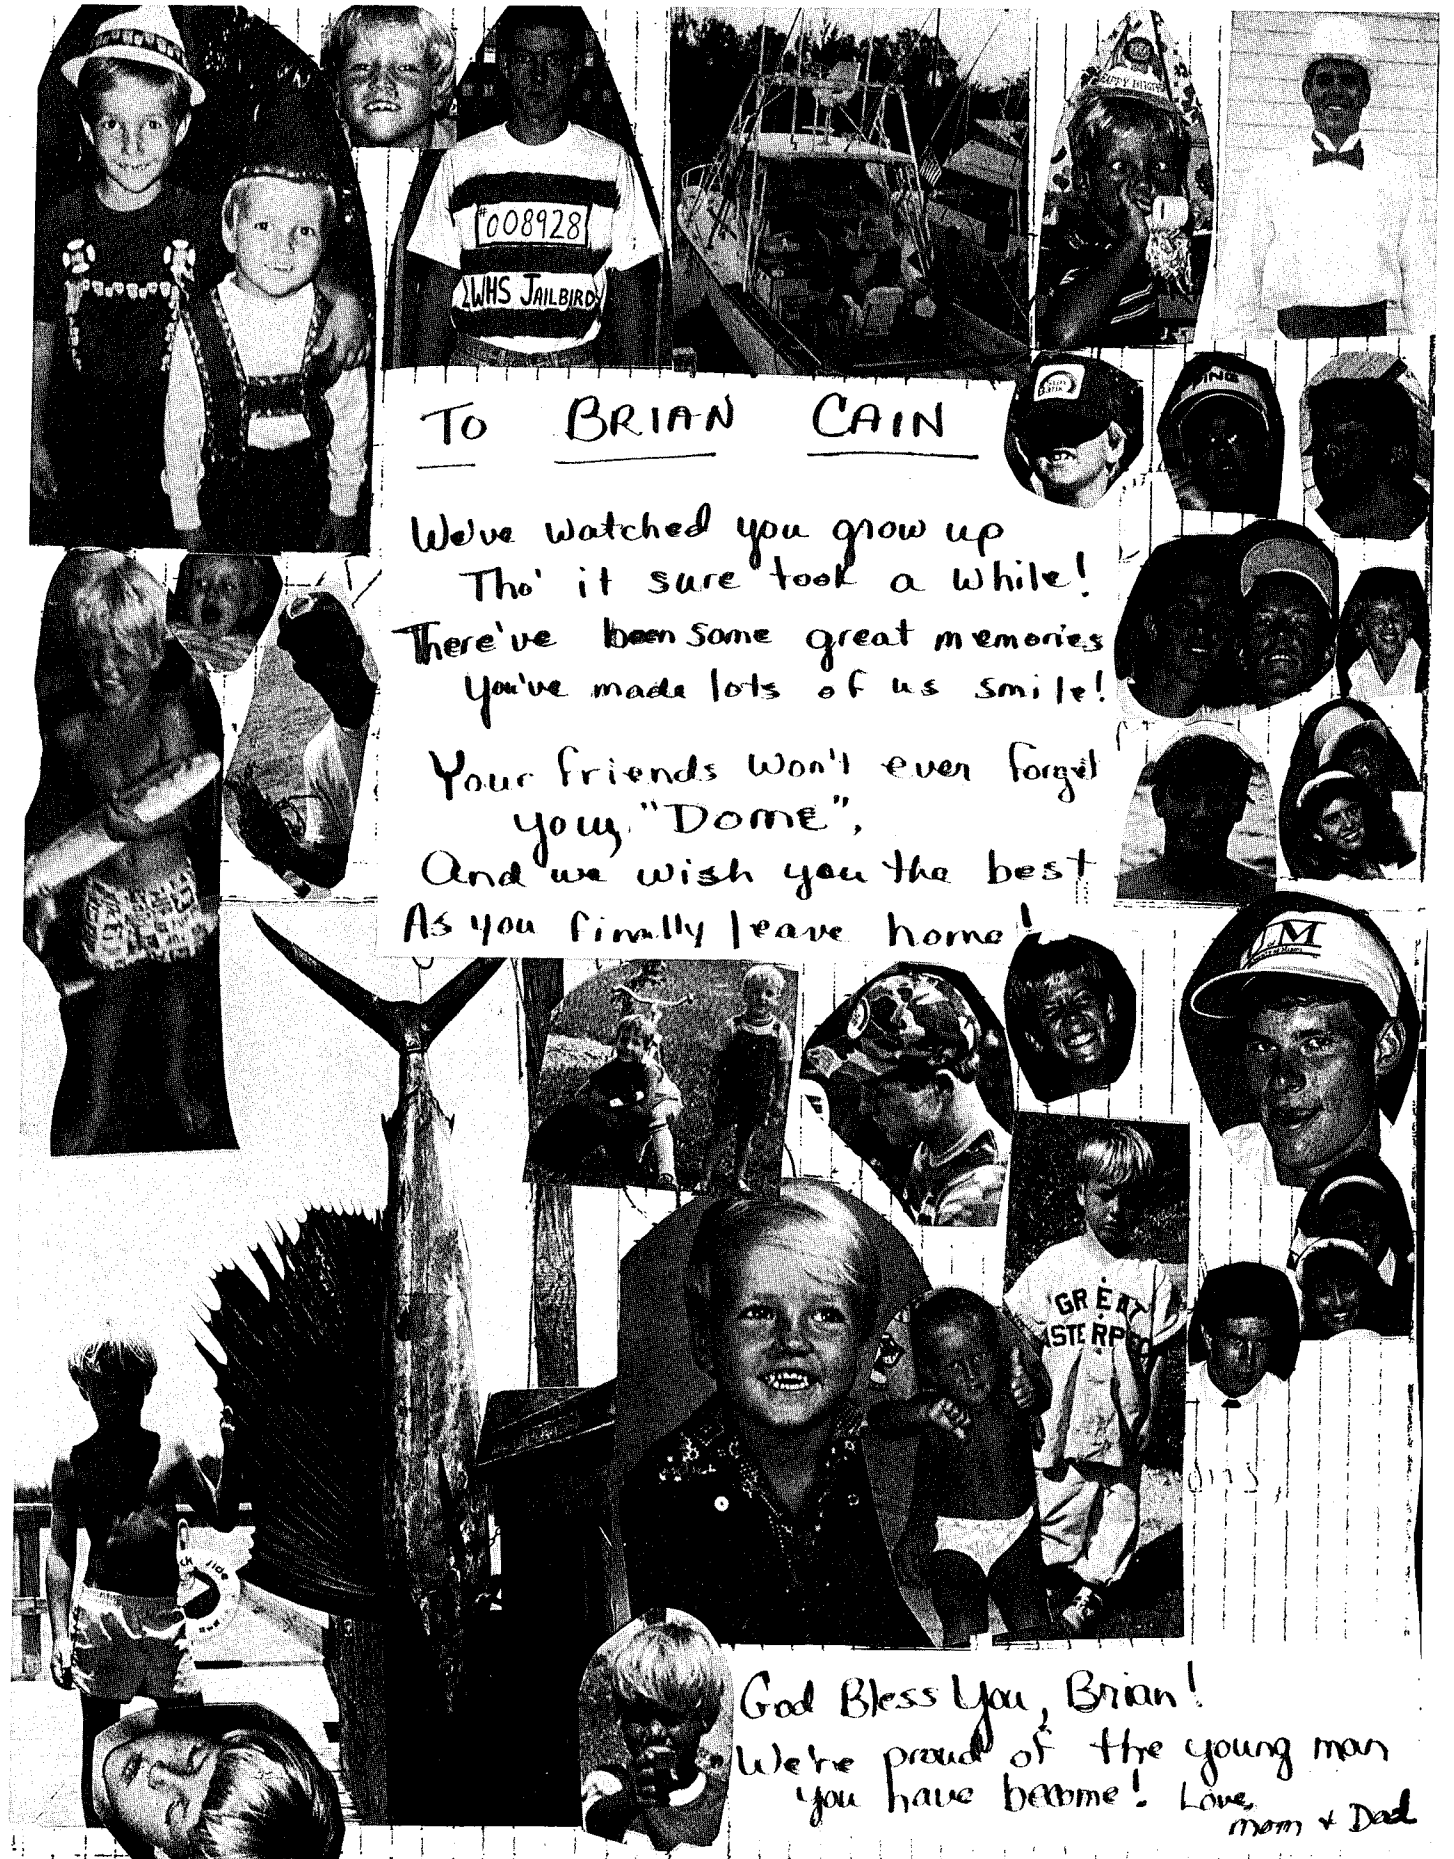 HAPPY BIRTHDAY
#008928
WHS JAILBIRD
PING
TO BRIAN CAIN
We've watched you grow up
Tho' it sure took a while!
There've been some great memories
You've made lots of us smile!
Your friends won't ever forget
you, "Dome",
And we wish you the best
As you finally leave home!
U of M
GREAT
ASTERP
God Bless You, Brian!
We're proud of the young man
you have become! Love,
Mom + Dad